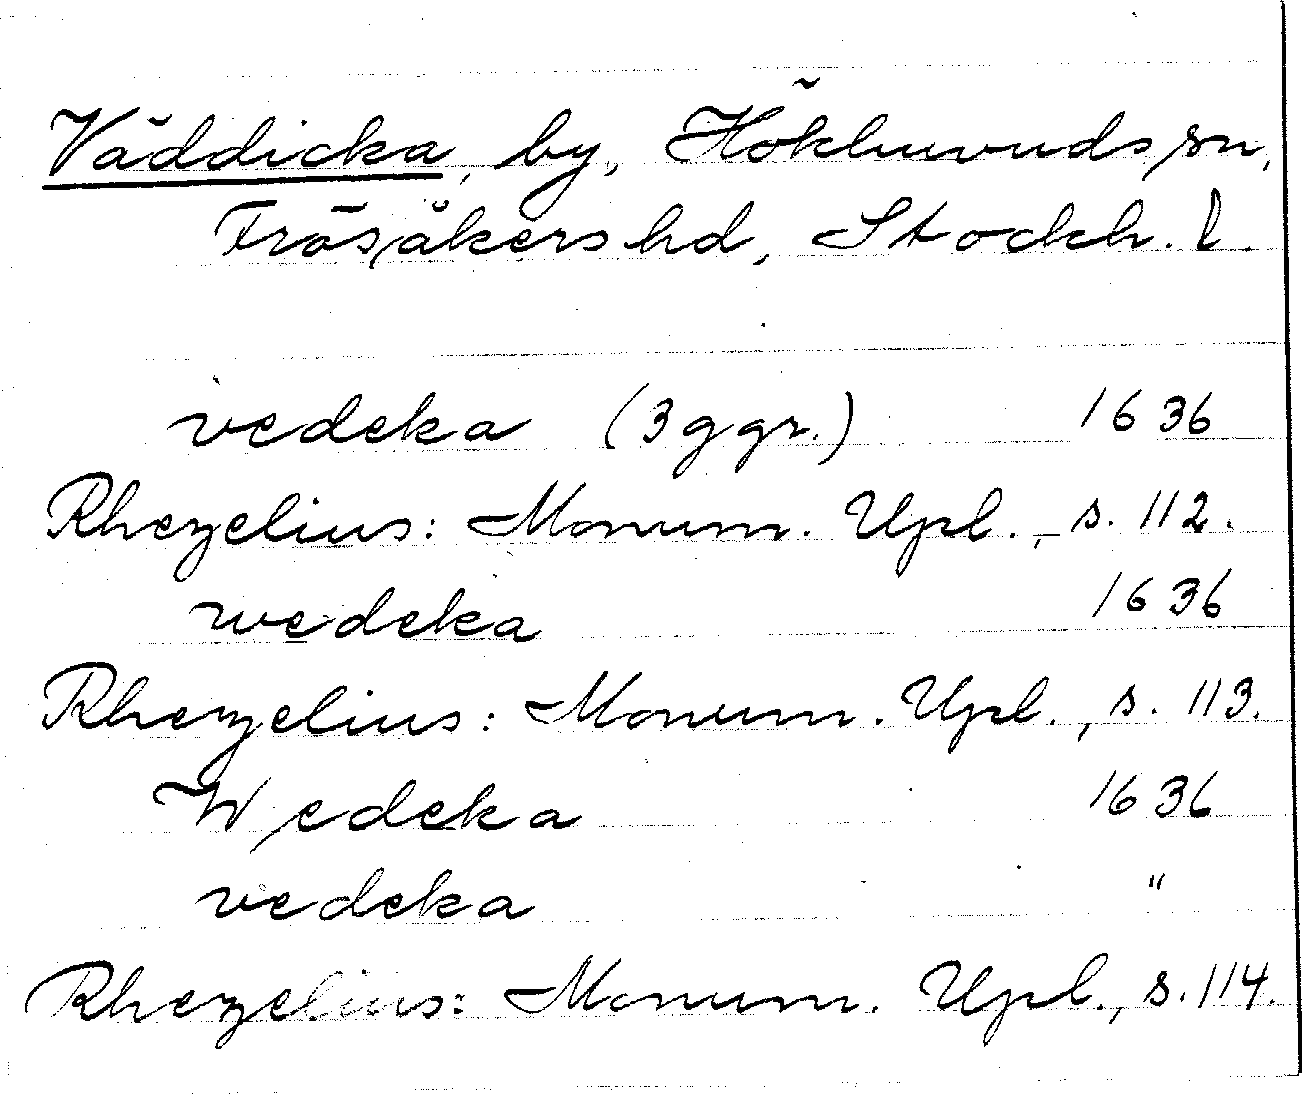 Väddicka, by, Hökhuvuds sn,
Frösåkers hd, Stockh. l.
vedeka (3 ggr.) 1636
Rhezelius: Monum. Upl., s. 112.
wedeka 1636
Rhezelius: Monum. Upl., s. 113.
Wedeka 1636
vedeka "
Rhezelius: Monum. Upl., s. 114.